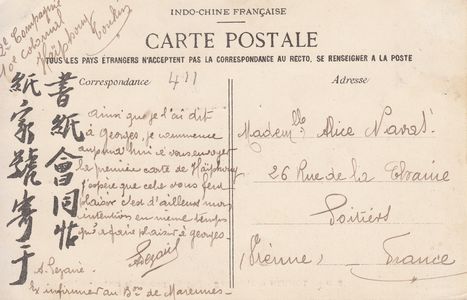 INDO-CHINE FRANÇAISE
CARTE POSTALE
TOUS LES PAYS ÉTRANGERS N'ACCEPTENT PAS LA CORRESPONDANCE AU RECTO, SE RENSEIGNER A LA POSTE
Correspondance
Adresse
411
2e Compagnie
10e colonial
Haïphong
Tonkin
書紙會同帖
紙家號寄于
ainsi que je l'ai dit
à Georges, je commence
aujourd'hui à vous envoyer
la première carte de Haïphong
j'espère que cela vous fera
plaisir c'est d'ailleurs mon
intention en même temps
qu'à faire plaisir à georges.
A.
Ex infirmier au Bon de Marennes
Mademlle Alice Naval
26 Rue de la Chaine
Poitiers
(Vienne) France